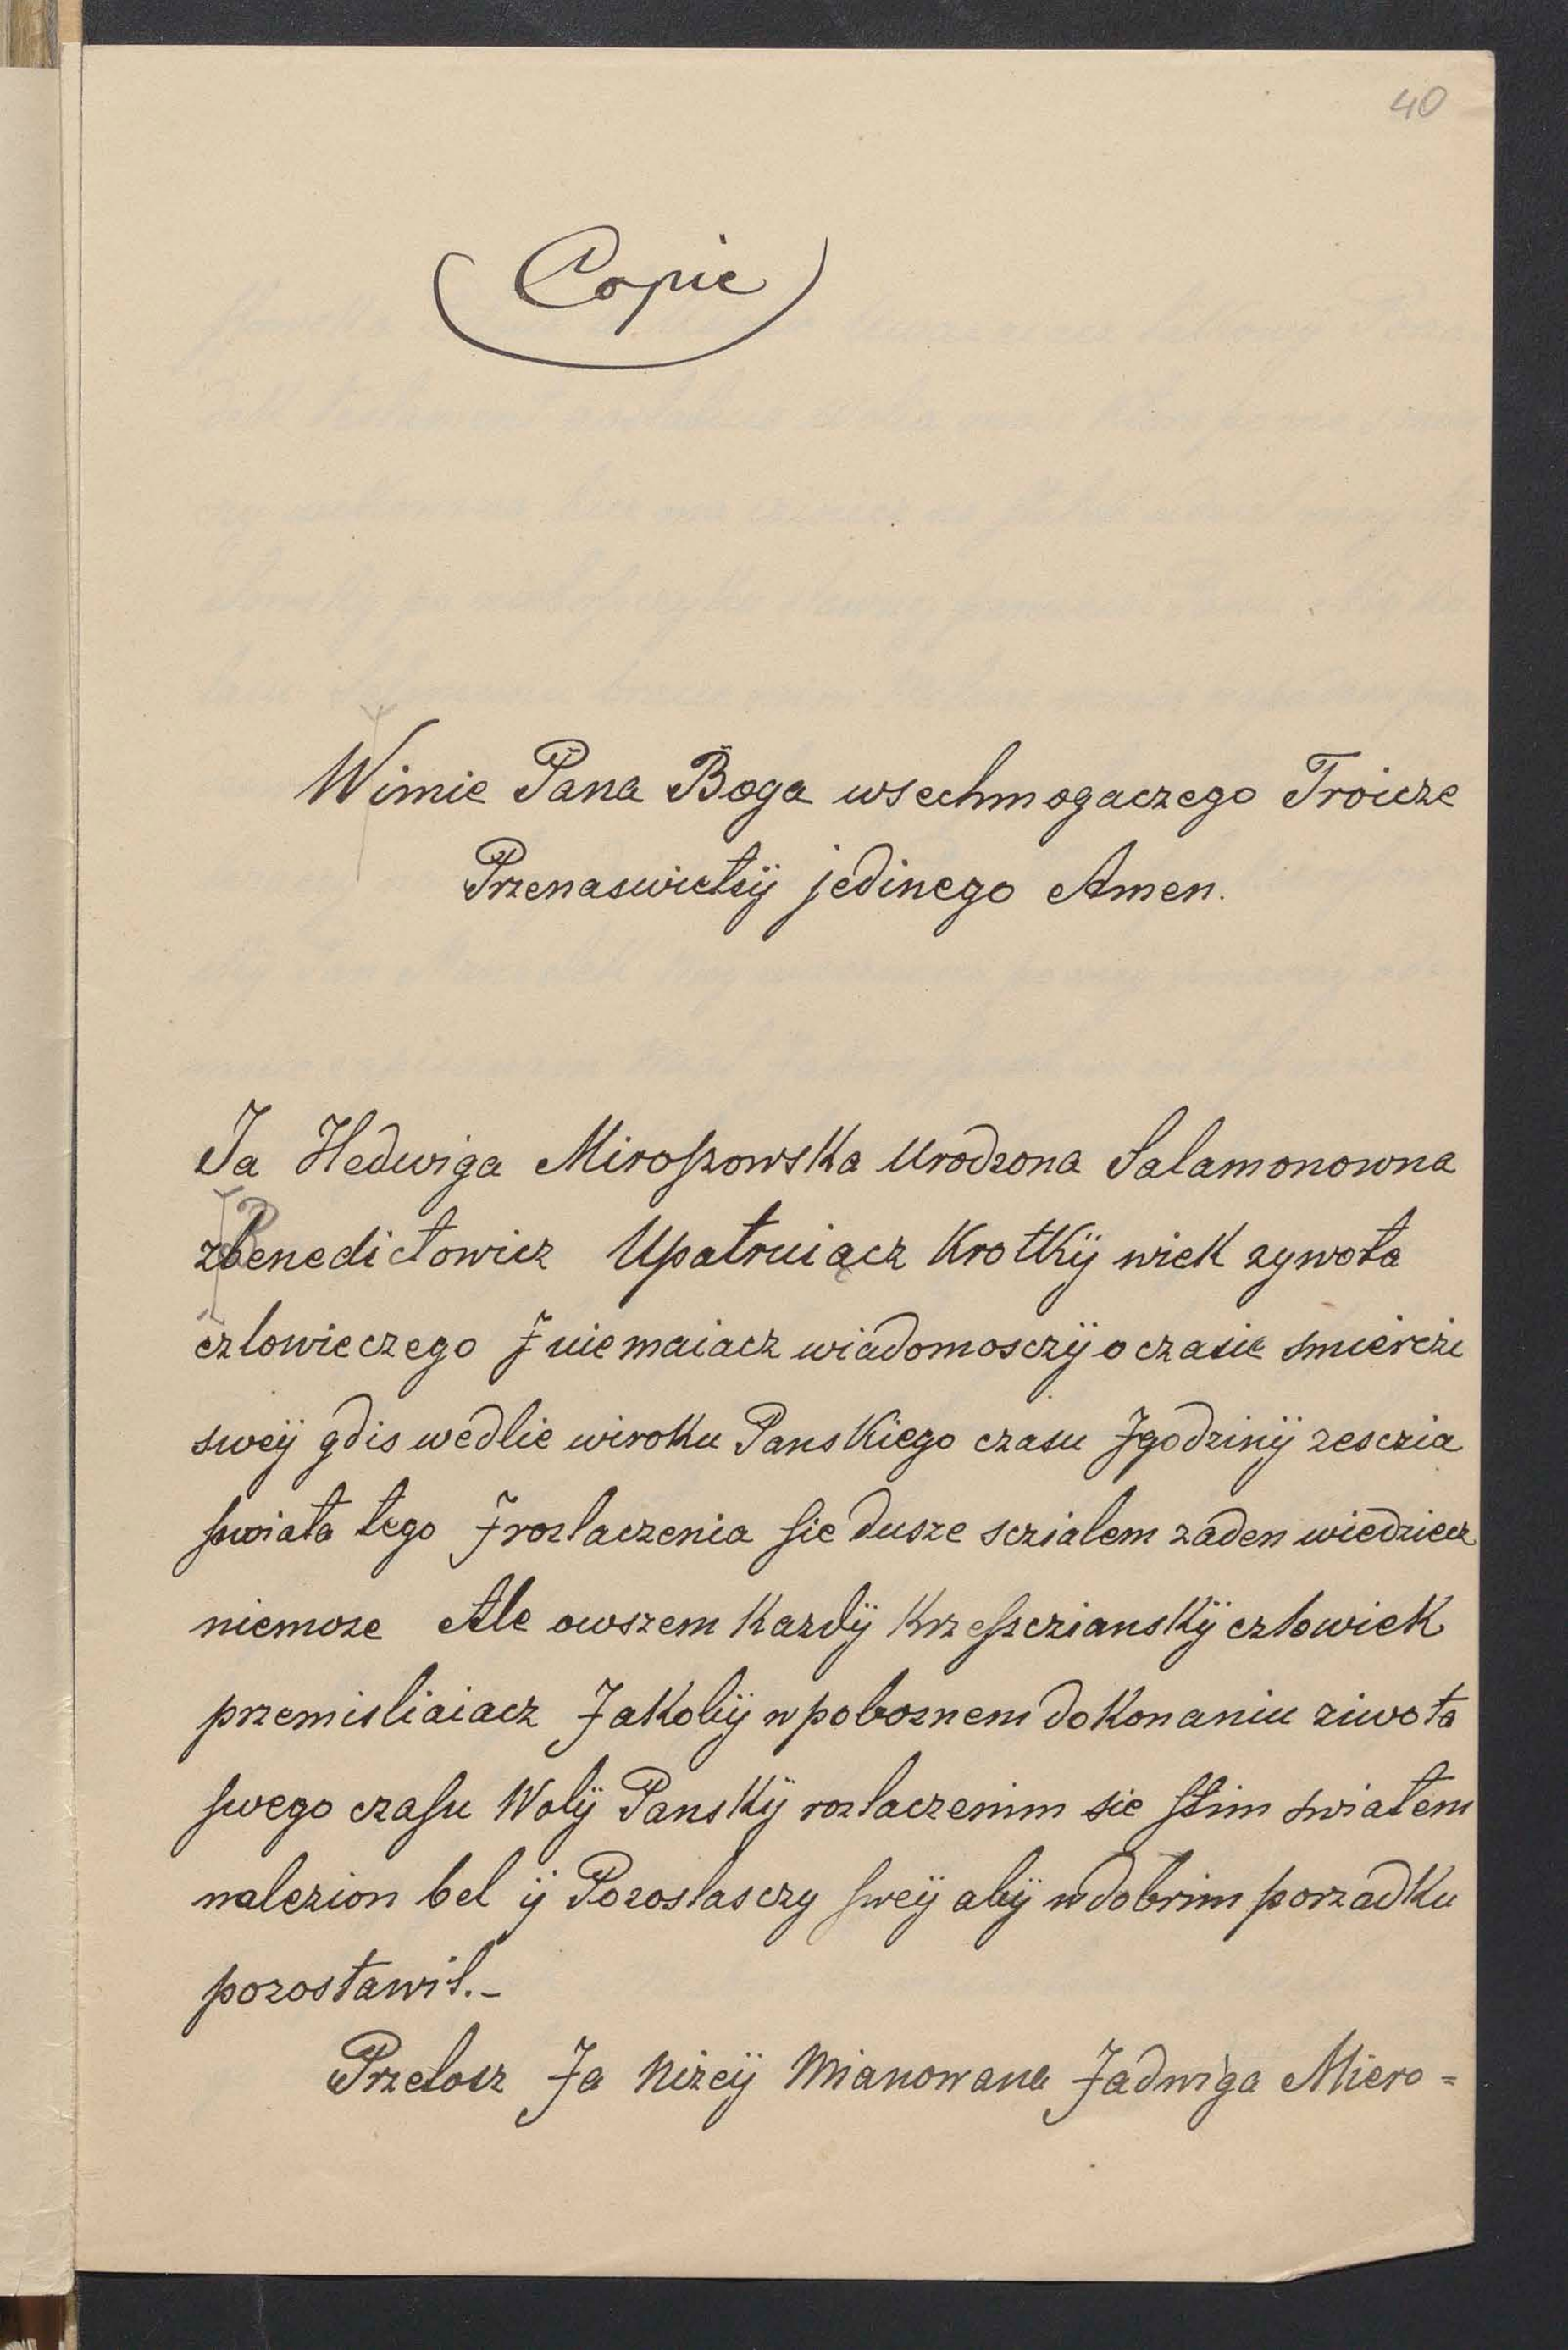 40
(Copie)
Wimie Pana Boga wsechmogaczego Troicze
Przenaswietsÿ jedinego Amen.
Ja Hedwiga Miroſzowska Urodzona Salamonowna
zbenedictowicz Upatruiącz Krotkÿ wiek zywota
czlowieczego J niemaiacz wiadomosczÿ o czasie smierczi
sweÿ gdis wedlie wiroku Panskiego czasu J godzinÿ zesczia
ſwiata tego J rozlaczenia ſie dusze sczialem zaden wiedziecz
niemoze Ale owszem Kazdÿ Krzeſzczianskÿ czlowiek
przemisliaiacz Jakobÿ w poboznem dokonaniu ziwota
ſwego czaſu Wolÿ Panskÿ rozlaczenim sie ſtim swiatem
nalezion bel ÿ Pozostasczy ſweÿ abÿ w dobrim porzadku
pozostawil.-
Przetosz Ja Nizeÿ Mianowana Jadwiga Miero=